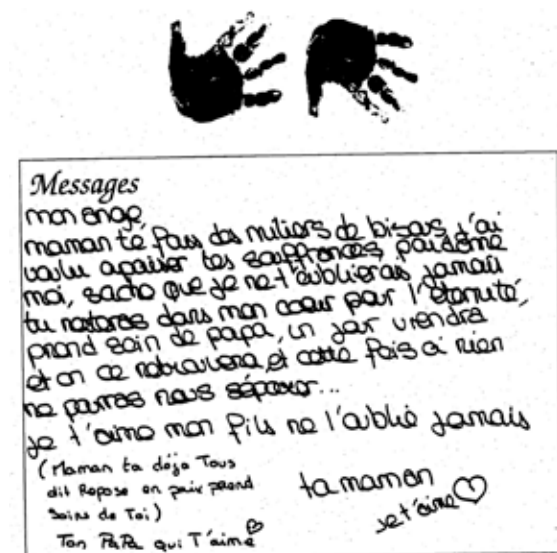 Messages
mon ange
maman té fais des miliers de bisous j'ai
voulu apaiser tes souffrances pardonne
moi, sache que je ne t'oublierais jamais
tu resteras dans mon cœur pour l'éternité,
prend soin de papa, un jour viendra
et on ce retrouvera, et cette fois ci rien
ne pourras nous séparer...
je t'aime mon fils ne l'oublie jamais
(Maman ta déja Tous
dit Repose en paix prend
Soins de Toi)
Ton PAPA qui T'aime
ta maman
je t'aime